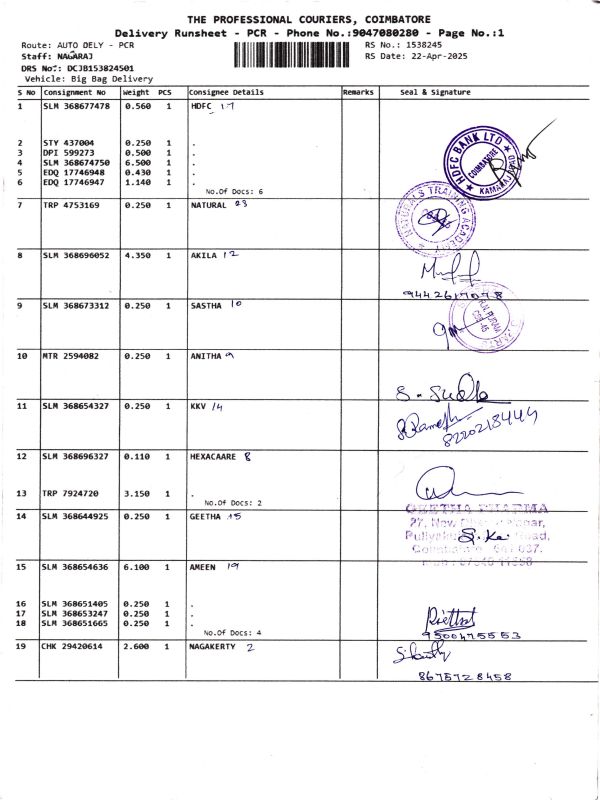 THE PROFESSIONAL COURIERS, COIMBATORE
Delivery Runsheet - PCR - Phone No.:9047080280 - Page No.:1
Route: AUTO DELY - PCR RS No.: 1538245
Staff: NAGARAJ RS Date: 22-Apr-2025
DRS No.: DCJB153824501
Vehicle: Big Bag Delivery
S No Consignment No Weight PCS Consignee Details Remarks Seal & Signature
1 SLM 368677478 0.560 1 HDFC 17
2 STY 437004 0.250 1 .
3 DPI 599273 0.500 1 .
4 SLM 368674750 6.500 1 .
5 EDQ 17746948 0.430 1 .
6 EDQ 17746947 1.140 1 .
No.Of Docs: 6
HDFC BANK LTD
COIMBATORE
7 TRP 4753169 0.250 1 NATURAL 23
NATURALS TRAINING ACADEMY
8 SLM 368696052 4.350 1 AKILA 12
9 SLM 368673312 0.250 1 SASTHA 10
10 MTR 2594082 0.250 1 ANITHA 9
11 SLM 368654327 0.250 1 KKV 14
8220218444
12 SLM 368696327 0.110 1 HEXACAARE 8
13 TRP 7924720 3.150 1 .
No.Of Docs: 2
14 SLM 368644925 0.250 1 GEETHA 15
GEETHA PHARMA
15 SLM 368654636 6.100 1 AMEEN 19
16 SLM 368651405 0.250 1 .
17 SLM 368653247 0.250 1 .
18 SLM 368651665 0.250 1 .
No.Of Docs: 4
9500475553
19 CHK 29420614 2.600 1 NAGAKERTY 2
8675728458